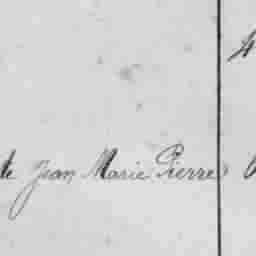 Jean Marie Pierre